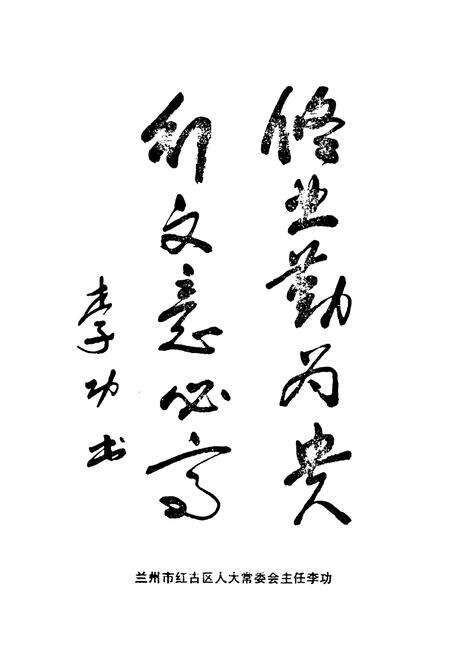 修业勤为贵
行文意必高
李功书
兰州市红古区人大常委会主任李功